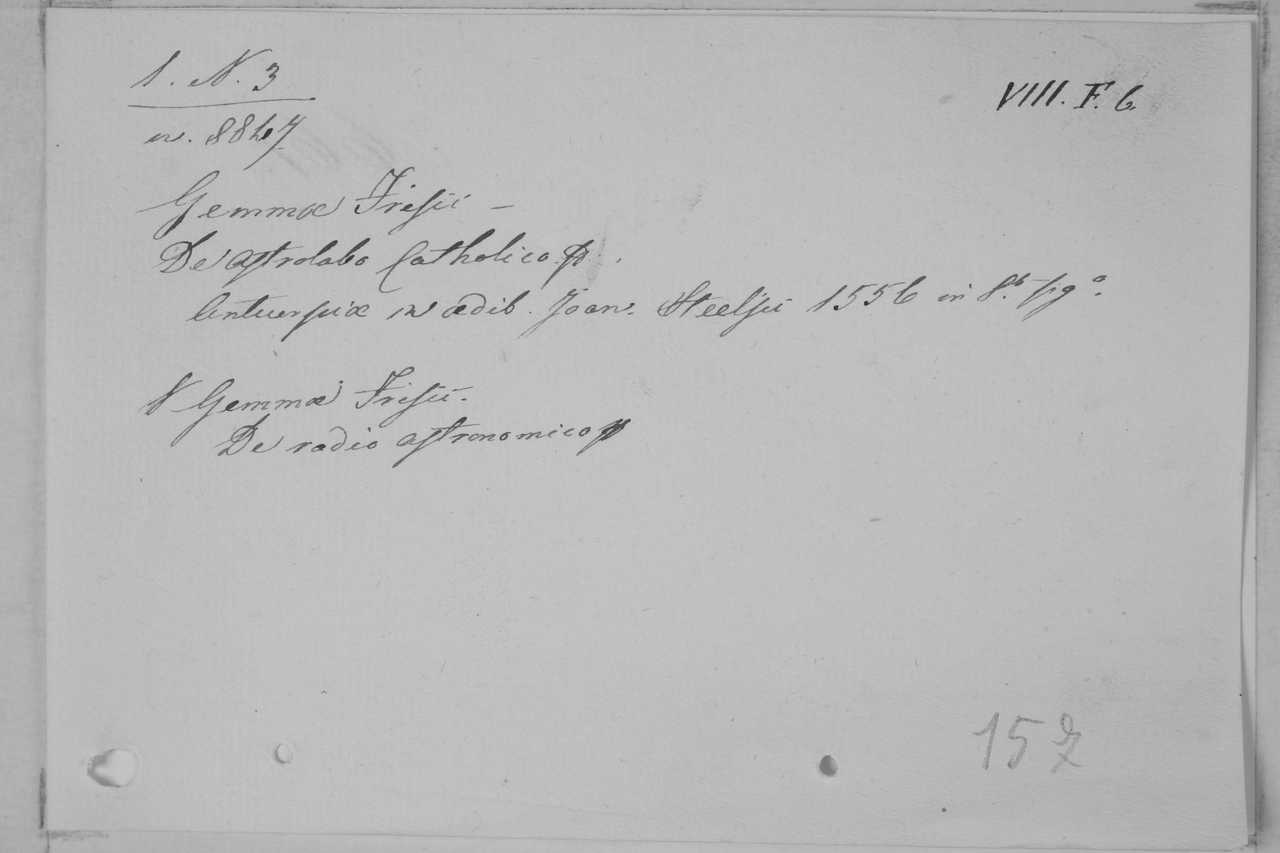 1. N. 3
VIII. F. 6
nr. 8847
Gemmæ Frisii –
De astrolabo Catholico
Antuerpiæ in ædib. Joan. Steelsii 1556 in 8.º
Gemmæ Frisii.
De radio astronomico